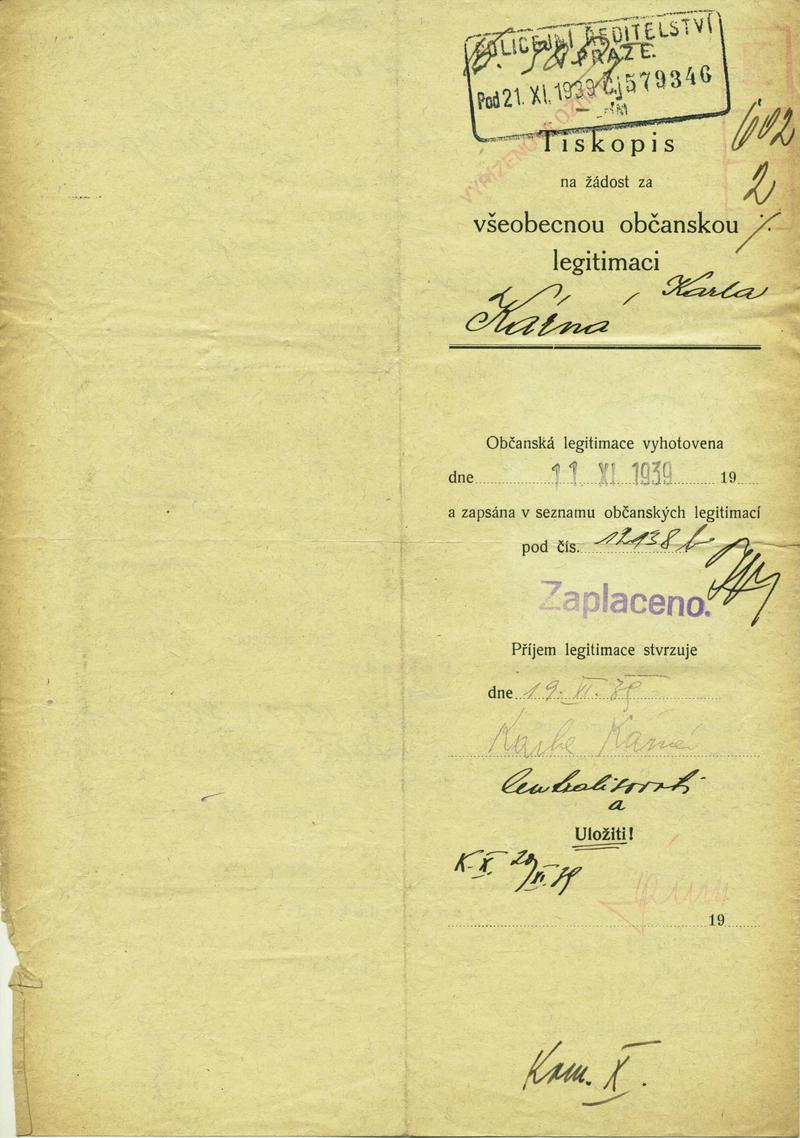 POLICEJNÍ ŘEDITELSTVÍ
V PRAZE.
Pod 21. XI. 1939 Čj 579346
602
2
Tiskopis
na žádost za
všeobecnou občanskou
legitimaci
Karla
Kárná
Občanská legitimace vyhotovena
dne 11 XI 1939 19
a zapsána v seznamu občanských legitimací
pod čís. 12138 b
Zaplaceno.
Příjem legitimace stvrzuje
dne 19. XI. 39
Centralisovati
a
Uložiti!
K. X. 20/XI. 39
19
Kom. X.